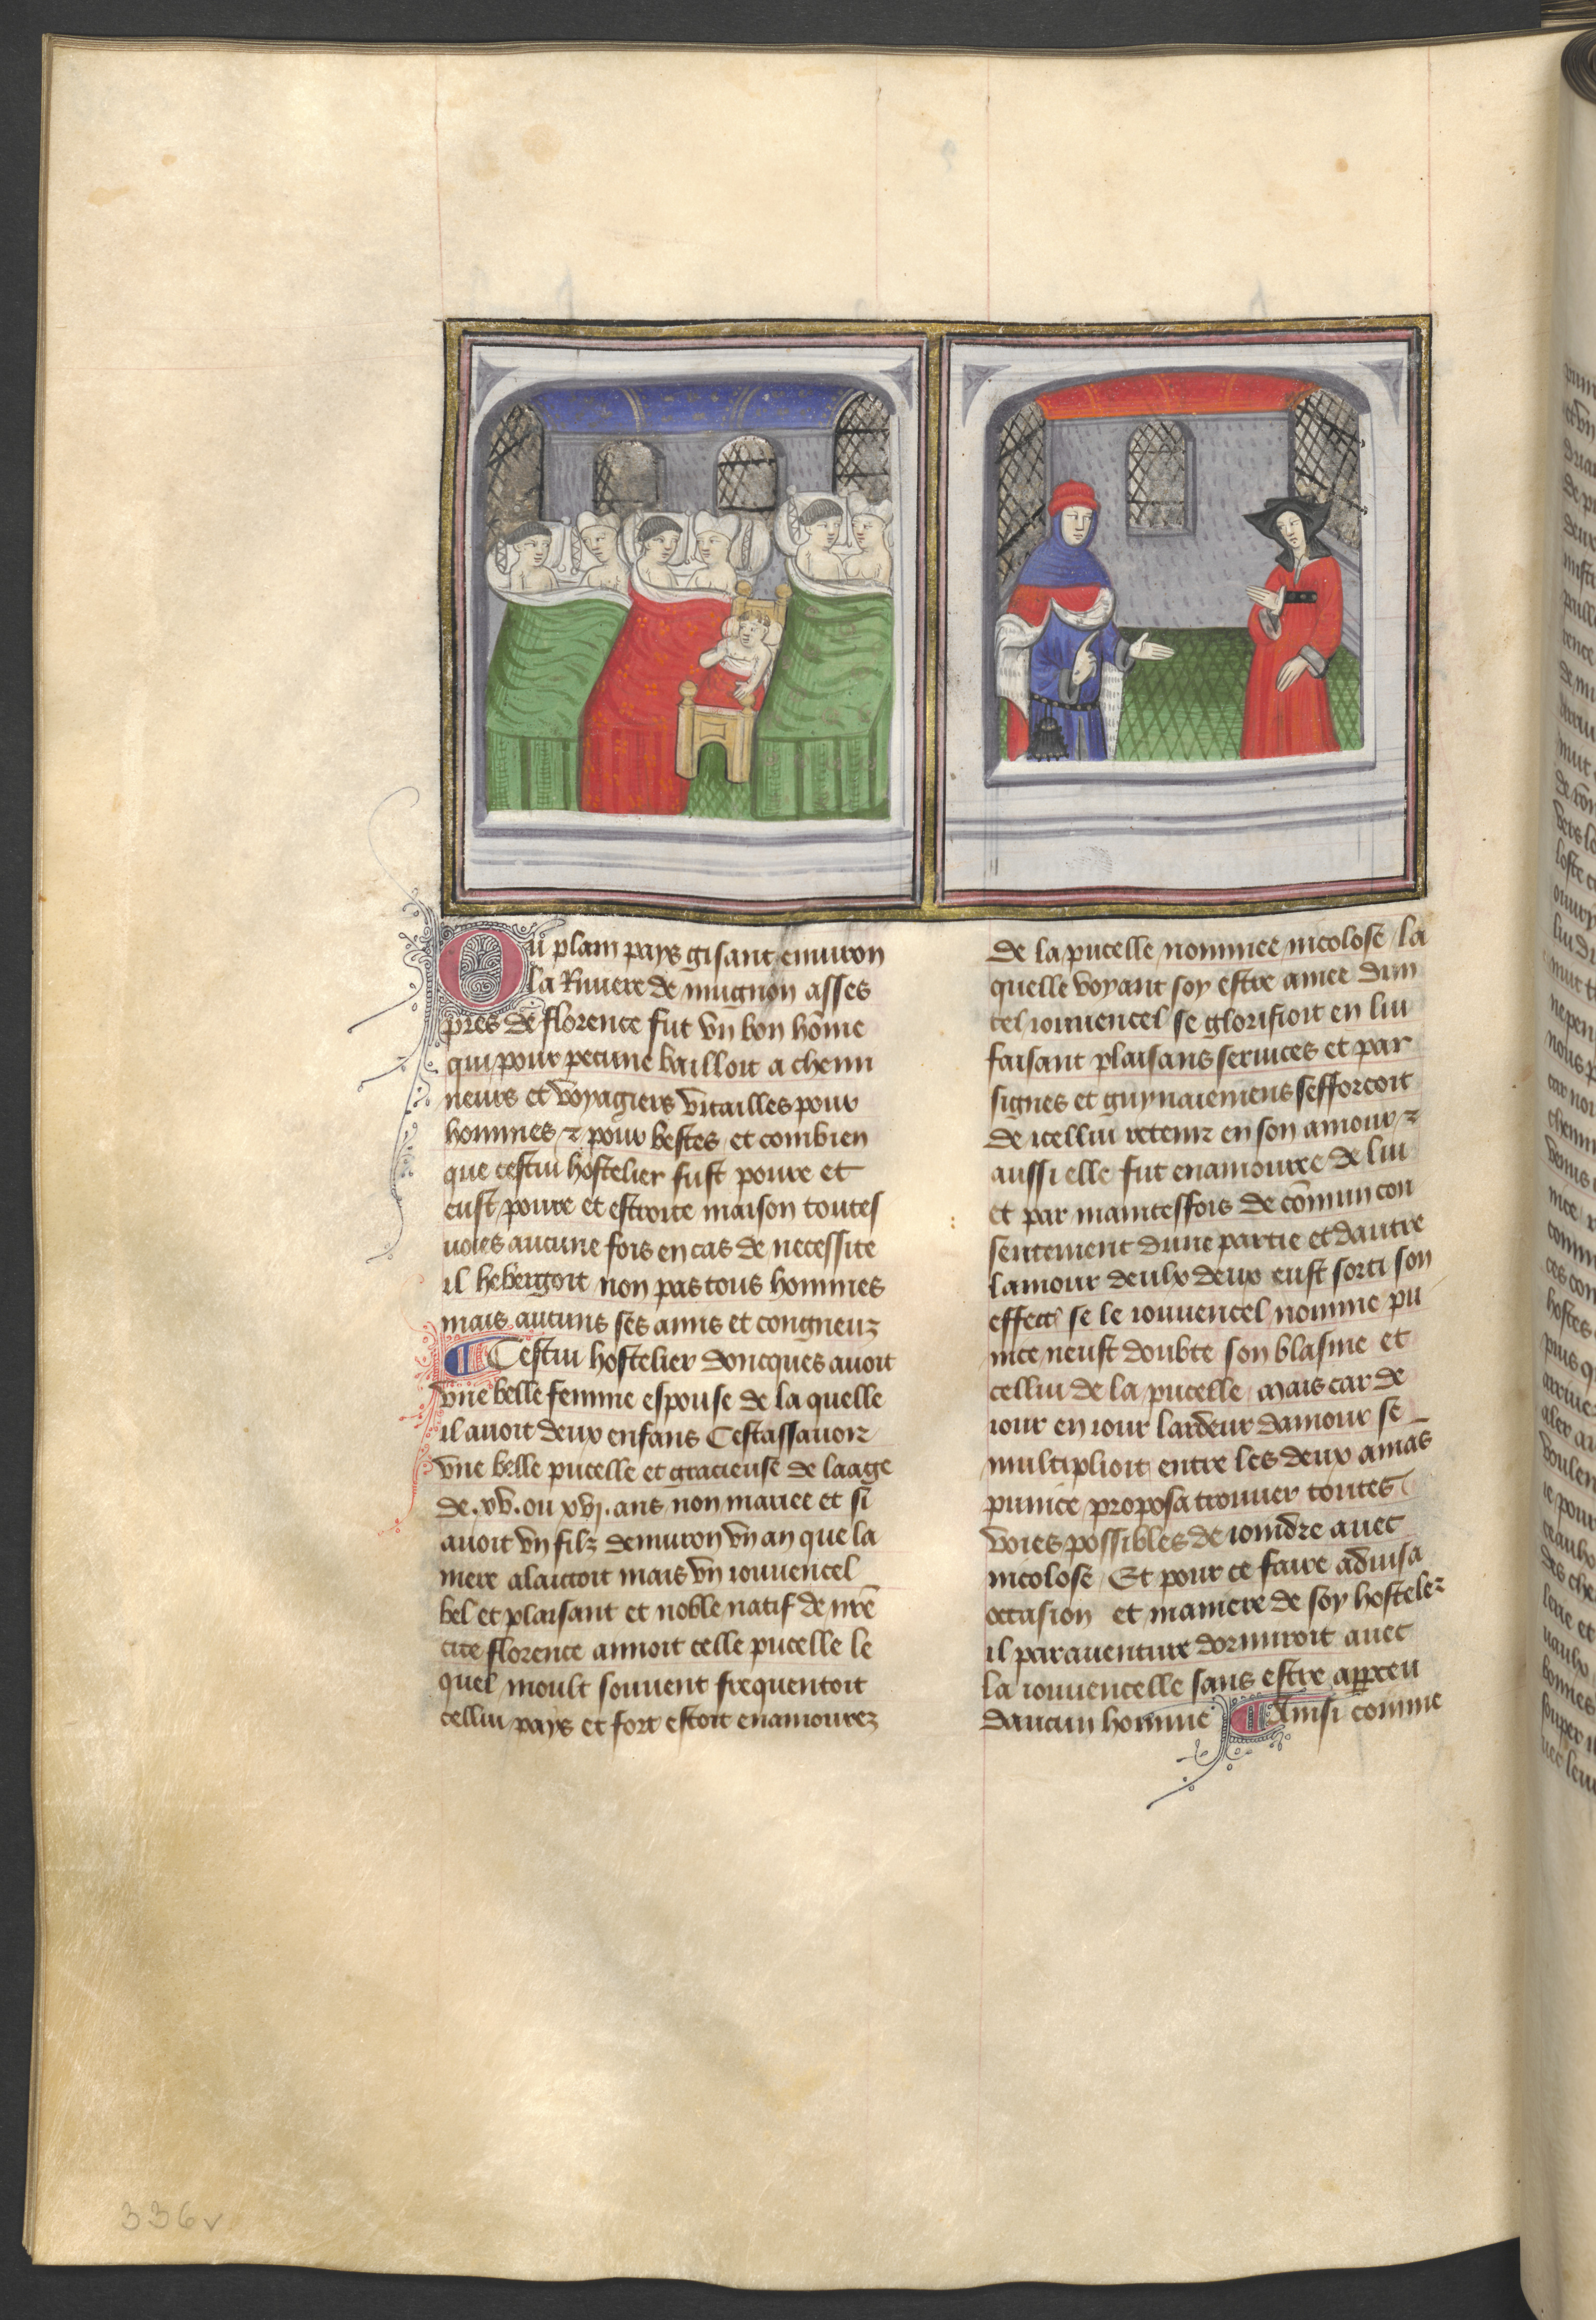 Ou plain pays gisant enuiron
la Riuiere de mugnon asses
pres de florence fut vn bon hõme
qui pour pecune bailloit a chemi
neurs et voyagiers vitailles pour
hommes ⁊ pour bestes et combien
que cestui hostelier fust poure et
eust poure et estroite maison toutes
uoies aucune fois en cas de necessite
il hebergoit non pas tous hommes
mais aucuns ses amis et congneuz
Cestui hostelier doncques auoit
vne belle femme espouse de la quelle
il auoit deux enfans Cestassauoir
vne belle pucelle et gracieuse de laage
de .xv. ou xvj. ans non mariee et si
auoit vn filz denuiron vn an que la
mere alaictoit mais vn iouuencel
bel et plaisant et noble natif de nrẽ
cite florence amoit celle pucelle le
quel moult souuent frequentoit
cellui pays et fort estoit enamourez
de la pucelle nommee nicolose la
quelle voyant soy estre amee dun
tel iouuencel se glorifioit en lui
faisant plaisans seruices et par
signes et guynaiemens sefforcoit
de icellui retenir en son amour ⁊
aussi elle fut enamouree de lui
et par maintesfois de cõmun con
sentement dune partie et dautre
lamour deulx deux eust sorti son
effect se le iouuencel nomme pu
nice neust doubte son blasme et
cellui de la pucelle mais car de
iour en iour lardeur damour se
multiplioit entre les deux amãs
punice proposa trouuer toutes
voies possibles de ioindre auec
nicolose Et pour ce faire aduisa
occasion et maniere de soy hosteler
il parauenture dormiroit auec
la iouuencelle sans estre apperceu
daucun homme Ainsi comme
336v